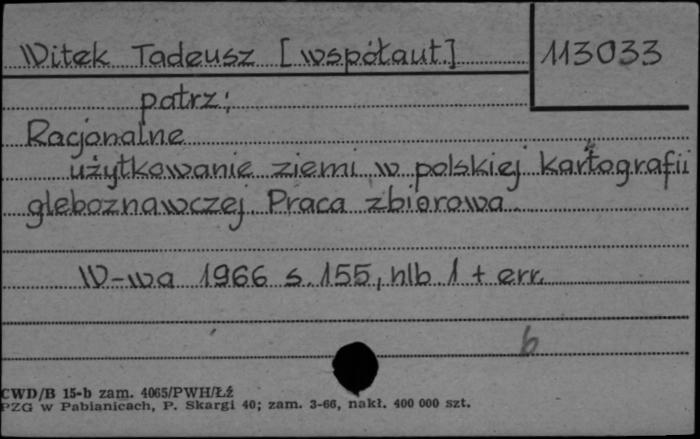 Witek Tadeusz [współaut.] 113033
patrz:
Racjonalne
użytkowanie ziemi w polskiej kartografii
gleboznawczej. Praca zbiorowa.
W-wa 1966 s. 155, nlb. 1 + err.
b
CWD/B 15-b zam. 4065/PWH/Łź
PZG w Pabianicach, P. Skargi 40; zam. 3-66, nakł. 400 000 szt.